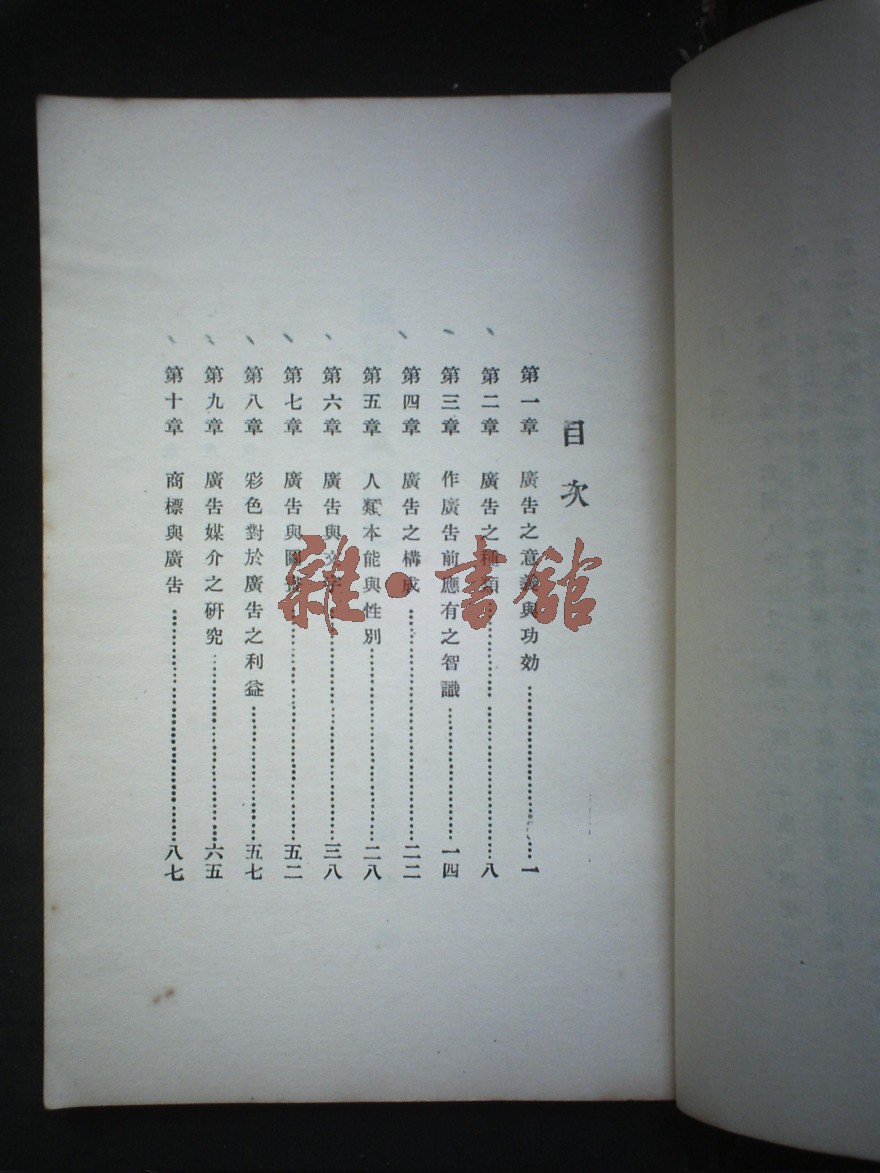 目次
第一章 廣告之意義與功効……一
第二章 廣告之種類……八
第三章 作廣告前應有之智識……一四
第四章 廣告之構成……二二
第五章 人類本能與性別……二八
第六章 廣告與文字……三八
第七章 廣告與圖畫……五二
第八章 彩色對於廣告之利益……五七
第九章 廣告媒介之研究……六五
第十章 商標與廣告……八七
雜·書館